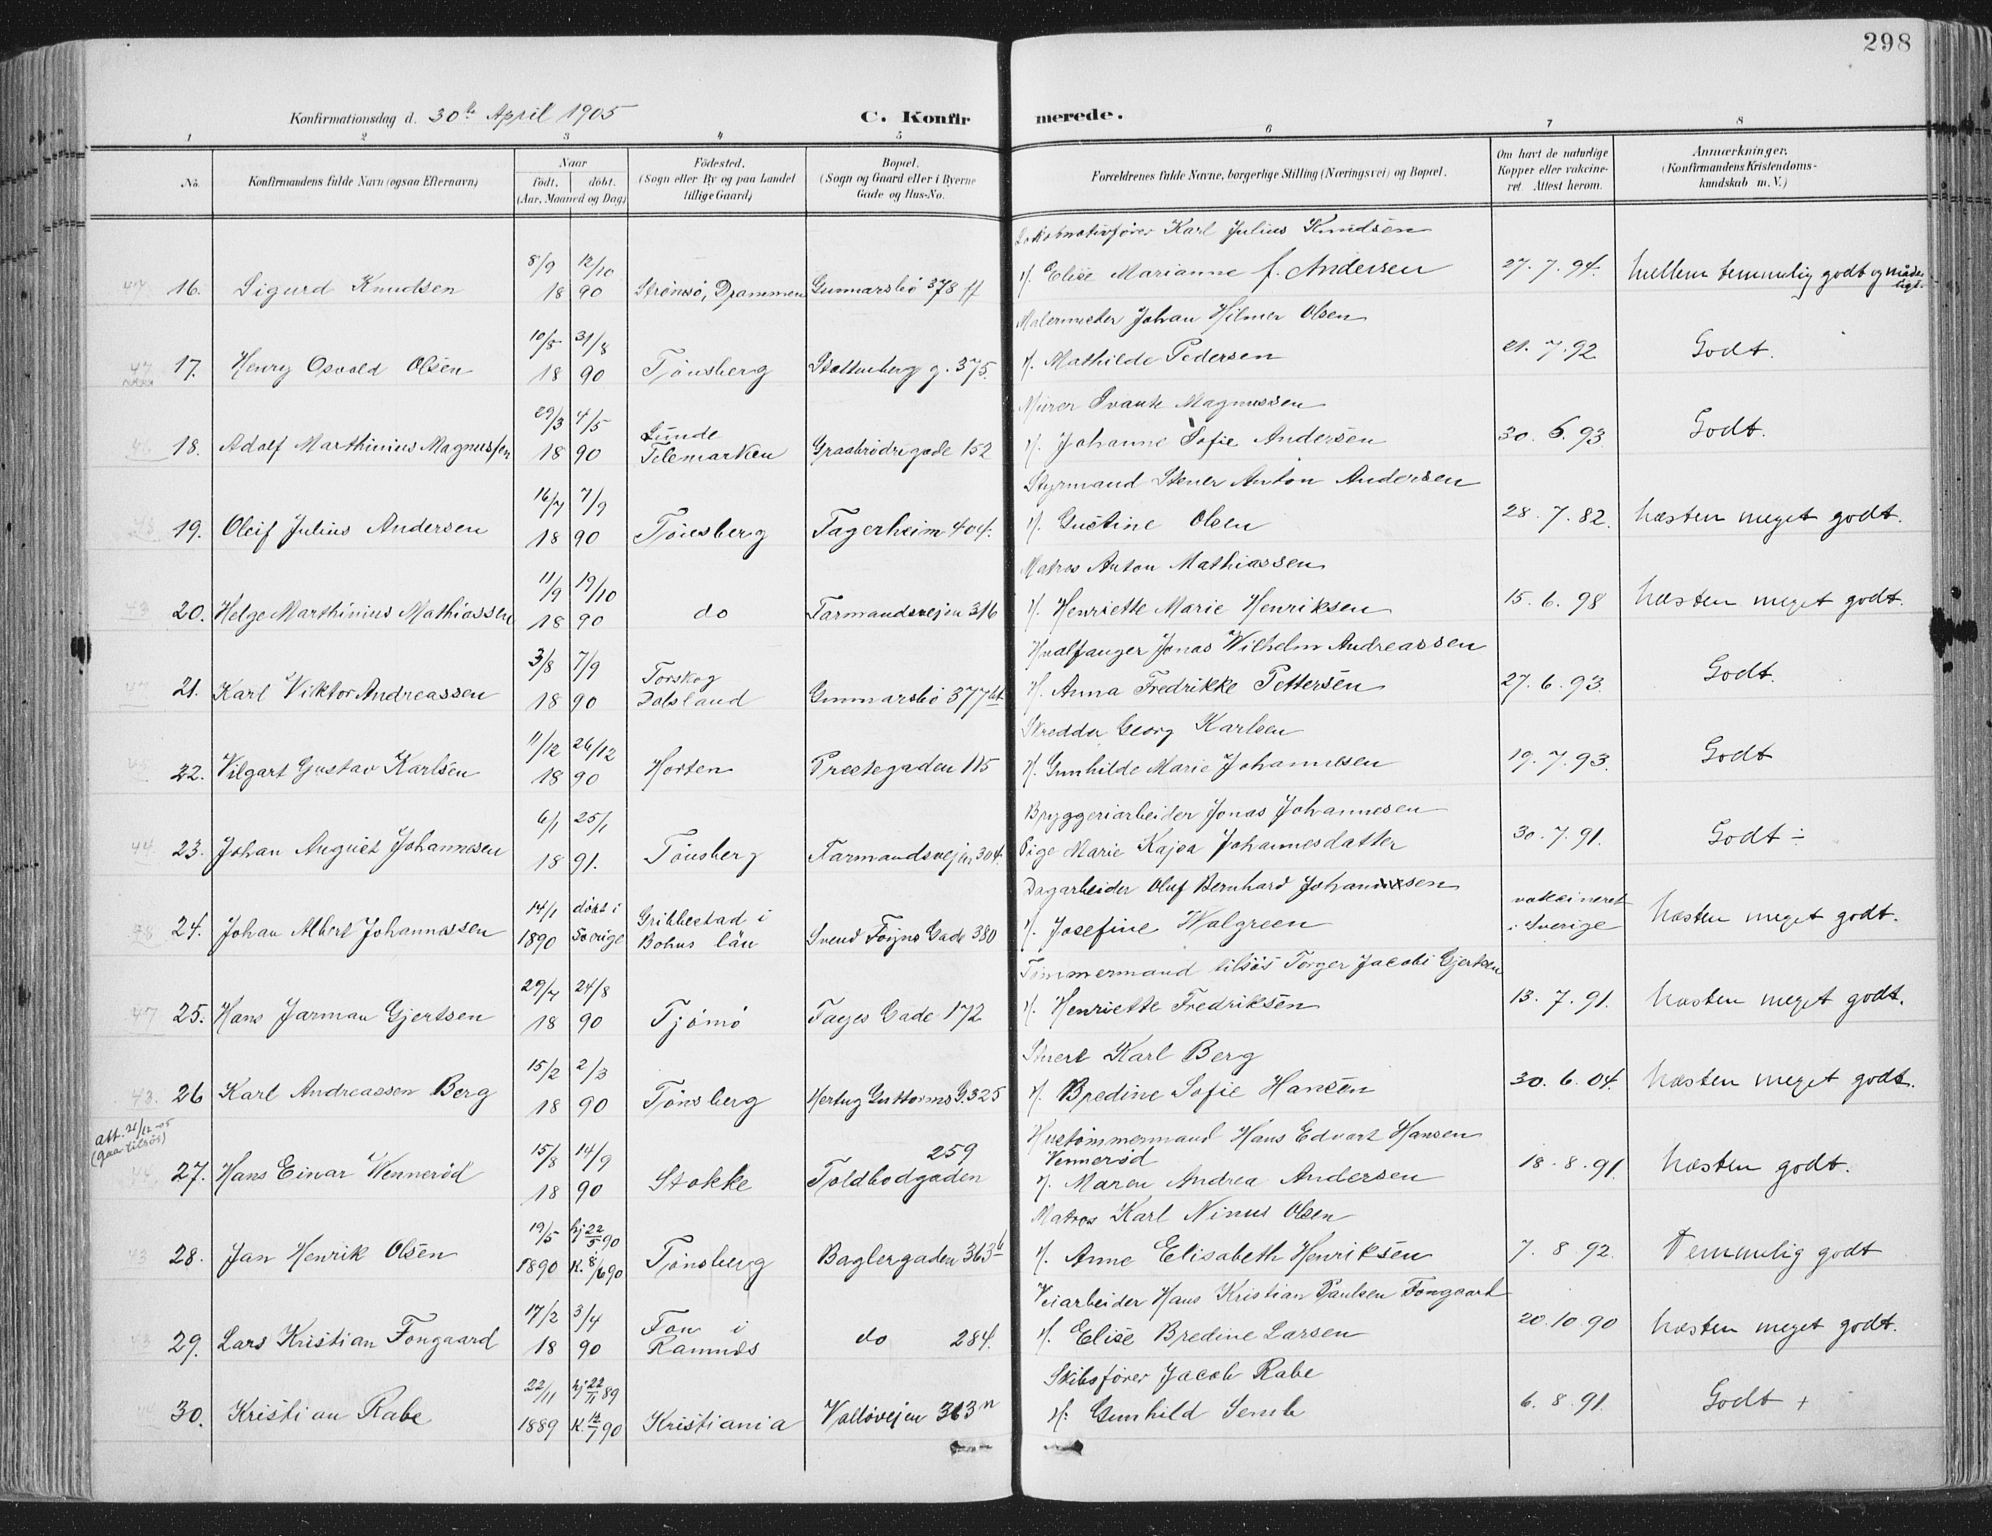 298
Konfirmationsdag d. 30te April 1905 C. Konfirmerede.
1 2 3 4 5 6 7 8
No. Konfirmandens fulde Navn (ogsaa Efternavn) Naar født. døbt. (Aar, Maaned og Dag) Fødested. (Sogn eller By og paa Landet tillige Gaard) Bopæl. (Sogn og Gaard eller i Byerne Gade og Hus-No. Forældrenes fulde Navne, borgerlige Stilling (Næringsvei) og Bopæl. Om havt de naturlige Kopper eller vakcineret. Attest herom. Anmærkninger, (Konfirmandens Kristendomskundskab m. V.)
Lokomotivfører Karl Julius Knudsen
16. Sigurd Knudsen 8/9 1890 12/10 Strømsø, Drammen Gunnarsbø 378 ff H. Elise Marianne f. Andersen 27.7.94. mellem temmelig godt og mådeligt.
Malermester Johan Hilmer Olsen
17. Henry Osvald Olsen 10/5 1890 31/8 Tønsberg Stoltenberg g. 375. H. Mathilde Pedersen 21.7.92 Godt.
Murer Svante Magnussen
18. Adolf Marthinius Magnussen 29/3 1890 4/5 Lunde Telemarken Graabrødregade 152 H. Johanne Sofie Andersen 30.6.93 Godt.
Styrmand Stener Anton Andersen
19. Oleif Julius Andersen 16/7 1890 7/9 Tønsberg Fagerheim 404. H. Gustine Olsen 28.7.82. Næsten meget godt.
Matros Anton Mathiassen
20. Helge Marthinius Mathiassen 11/9 1890 19/10 do Farmandsvejen 316 H. Henriette Marie Henriksen 15.6.98 Næsten meget godt.
Hvalfanger Jonas Wilhelm Andreassen
21. Karl Viktor Andreassen 3/8 1890 7/9 Torskog Dalsland Gunnarsbø 377 H. Anna Fredrikke Pettersen 27.6.93. Godt.
Skredder Georg Karlsen
22. Vilgart Gustav Karlsen 11/12 1890 26/12 Horten Prestegaden 115 H. Gunhilde Marie Johannesen 19.7.93. Godt
Bryggeriarbeider Jonas Johannesen
23. Johan August Johannesen 6/1 1891. 25/1 Tønsberg Farmandsvejen 304. Pige Marie Kajsa Johannesdatter 30.7.91. Godt ÷
Dagarbeider Oluf Bernhard Johannssen
24. Johan Albert Johannessen 14/1 1890 døbt i Sverige Gribbestad i Bohus län Svend Foyns Gade 380 H. Josefine Walgreen vakcineret i Sverige Næsten meget godt.
Tømmermand tilsøs Torger Jacobi Gjertsen
25. Hans Jarman Gjertsen 29/7 1890 24/8 Tjømø Fayes Gade 172 H. Henriette Fredriksen 13.7.91. Næsten meget godt.
Stuert Karl Berg
26 Karl Andreassen Berg 15/2 1890 2/3 Tønsberg Hertug Guttorms G. 325 H. Bredine Sofie Hansen 30.6.04. Næsten meget godt.
att. 21/12-05 (gaar tilsøs)
Hustømmermand Hans Edvart Hansen Vennerød
27. Hans Einar Wennerød 15/8 1890 14/9 Stokke Toldbodgaden 259 H. Maren Andrea Andersen 18.8.91 Næsten godt.
Matros Karl Ninus Olsen
28. Jan Henrik Olsen 19/5 1890 hj 22/5 90 K. 8/6 90 Tønsberg Baglergaden 363 b H. Anne Elisabeth Henriksen 7.8 92. Temmelig godt
Veiarbeider Hans Kristian Paulsen Fongaard
29. Lars Kristian Fongaard 17/2 1890 3/4 Fon i Ramnes do 284. H. Elise Bredine Larsen 20.10.90 Næsten meget godt.
Skibsfører Jacob Rabe
30. Kristian Rabe 22/11 1889 hj 22/11 89 K. 90 Kristiania Valløvejen 363 n H: Gunhild Semb 6.8.91. Godt +